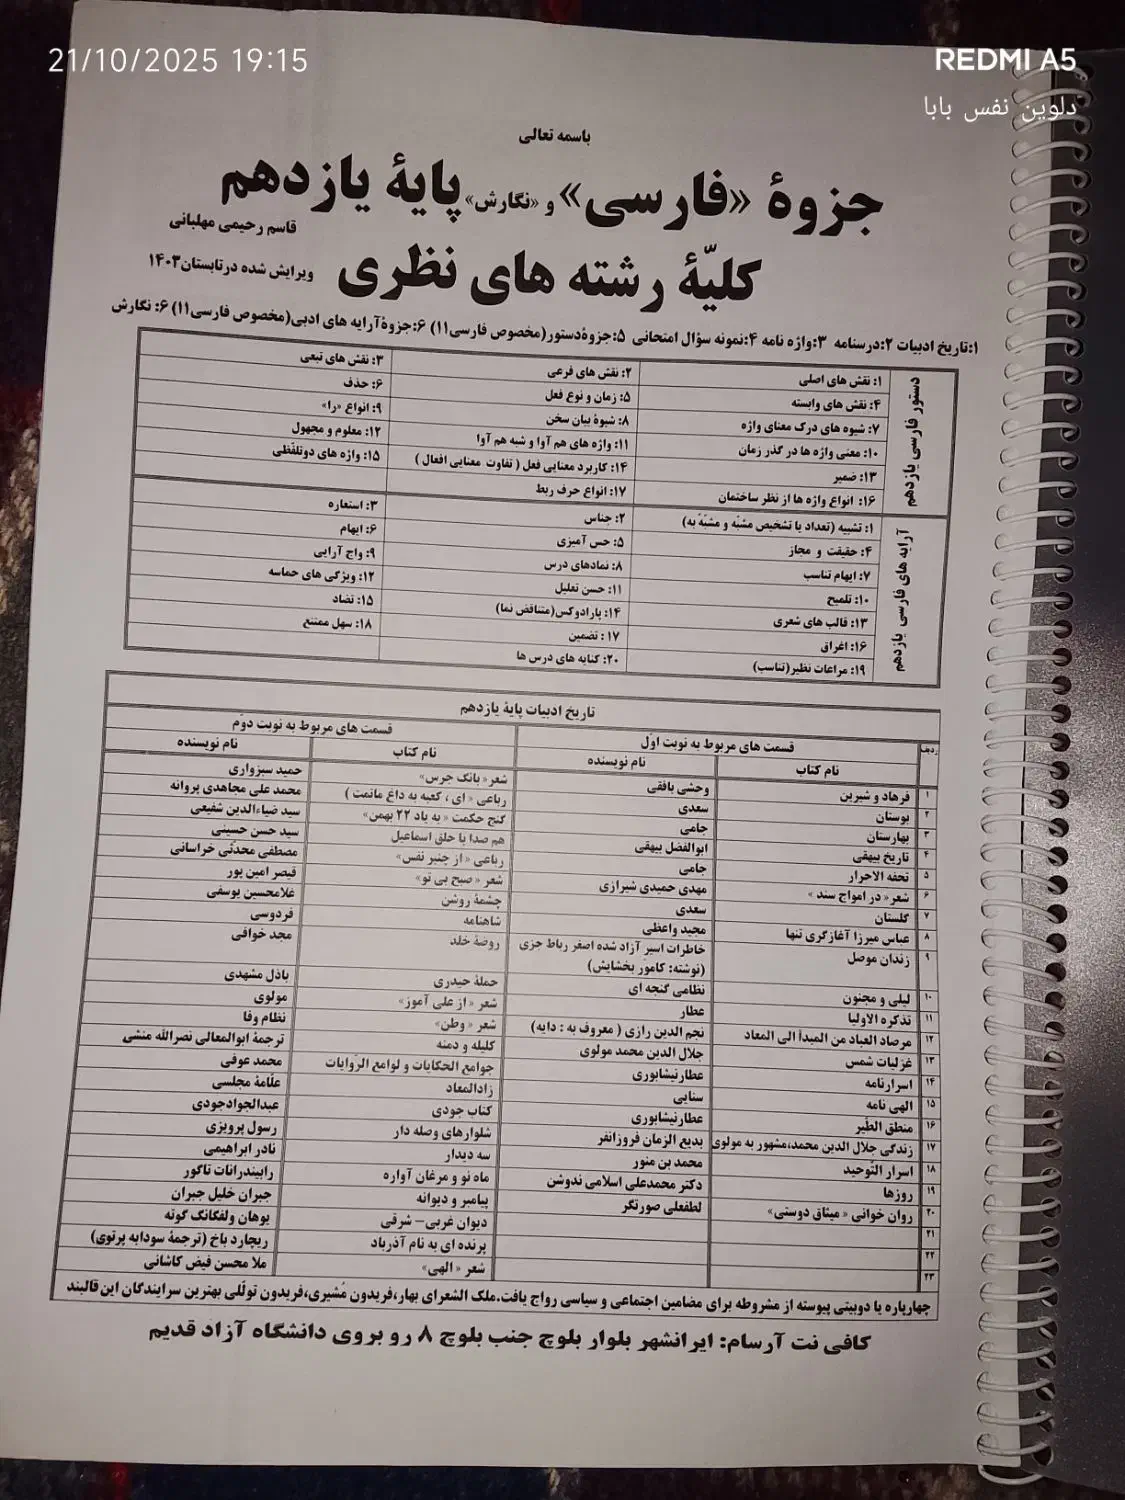 21/10/2025 19:15
REDMI A5
دلوین نفس بابا
باسمه تعالی
جزوهٔ «فارسی» و «نگارش» پایهٔ یازدهم
قاسم رحیمی مهلبانی
کلیّهٔ رشته های نظری
ویرایش شده درتابستان۱۴۰۳
۱:تاریخ ادبیات ۲:درسنامه ۳:واژه نامه ۴:نمونه سؤال امتحانی ۵:جزوهٔدستور(مخصوص فارسی۱۱) ۶:جزوهٔآرایه های ادبی(مخصوص فارسی۱۱) ۶: نگارش
دستور فارسی یازدهم
۱: نقش های اصلی ۲: نقش های فرعی ۳: نقش های تبعی
۴: نقش های وابسته ۵: زمان و نوع فعل ۶: حذف
۷: شیوه های درک معنای واژه ۸: شیوهٔ بیان سخن ۹: انواع «را»
۱۰: معنی واژه ها در گذر زمان ۱۱: واژه های هم آوا و شبه هم آوا ۱۲: معلوم و مجهول
۱۳: ضمیر ۱۴: کاربرد معنایی فعل ( تفاوت معنایی افعال ) ۱۵: واژه های دوتلفّظی
۱۶: انواع واژه ها از نظر ساختمان ۱۷: انواع حرف ربط
آرایه های فارسی یازدهم
۱: تشبیه (تعداد یا تشخیص مشبّه و مشبّهٌ به) ۲: جناس ۳: استعاره
۴: حقیقت و مجاز ۵: حس آمیزی ۶: ایهام
۷: ایهام تناسب ۸: نمادهای درس ۹: واج آرایی
۱۰: تلمیح ۱۱: حسن تعلیل ۱۲: ویژگی های حماسه
۱۳: قالب های شعری ۱۴: پارادوکس(متناقض نما) ۱۵: تضاد
۱۶: اغراق ۱۷: تضمین ۱۸: سهل ممتنع
۱۹: مراعات نظیر(تناسب) ۲۰: کنایه های درس ها
تاریخ ادبیات پایهٔ یازدهم
ردیف قسمت های مربوط به نوبت اوّل قسمت های مربوط به نوبت دوّم
نام کتاب نام نویسنده نام کتاب نام نویسنده
۱ فرهاد و شیرین وحشی بافقی شعر« بانگ جرس» حمید سبزواری
۲ بوستان سعدی رباعی « ای ، کعبه به داغ ماتمت ) محمد علی مجاهدی پروانه
۳ بهارستان جامی گنج حکمت « به یاد ۲۲ بهمن» سید ضیاءالدین شفیعی
۴ تاریخ بیهقی ابوالفضل بیهقی هم صدا با حلق اسماعیل سید حسن حسینی
۵ تحفه الاحرار جامی رباعی « از چنبر نفس» مصطفی محدّثی خراسانی
۶ شعر« در امواج سند » مهدی حمیدی شیرازی شعر «صبح بی تو» قیصر امین پور
۷ گلستان سعدی چشمهٔ روشن غلامحسین یوسفی
۸ عباس میرزا آغازگری تنها مجید واعظی شاهنامه فردوسی
۹ زندان موصل خاطرات اسیر آزاد شده اصغر رباط جزی روضهٔ خلد مجد خوافی
(نوشته: کامور بخشایش)
۱۰ لیلی و مجنون نظامی گنجه ای حملهٔ حیدری باذل مشهدی
۱۱ تذکره الاولیا عطار شعر «از علی آموز» مولوی
۱۲ مرصاد العباد من المبدأ الی المعاد نجم الدین رازی ( معروف به : دایه) شعر « وطن» نظام وفا
۱۳ غزلیات شمس جلال الدین محمد مولوی کلیله و دمنه ترجمهٔ ابوالمعالی نصرالله منشی
۱۴ اسرارنامه عطارنیشابوری جوامع الحکایات و لوامع الرّوایات محمد عوفی
۱۵ الهی نامه سنایی زادالمعاد علّامهٔ مجلسی
۱۶ منطق الطّیر عطارنیشابوری کتاب جودی عبدالجوادجودی
۱۷ زندگی جلال الدین محمد،مشهور به مولوی بدیع الزمان فروزانفر شلوارهای وصله دار رسول پرویزی
۱۸ اسرار التّوحید محمد بن منور سه دیدار نادر ابراهیمی
۱۹ روزها دکتر محمدعلی اسلامی ندوشن ماه نو و مرغان آواره رابیندرانات تاگور
۲۰ روان خوانی « میثاق دوستی» لطفعلی صورتگر پیامبر و دیوانه جبران خلیل جبران
۲۱ دیوان غربی– شرقی یوهان ولفگانگ گوته
۲۲ پرنده ای به نام آذرباد ریچارد باخ (ترجمهٔ سودابه پرتوی)
۲۳ شعر « الهی» ملا محسن فیض کاشانی
چهارپاره یا دوبیتی پیوسته از مشروطه برای مضامین اجتماعی و سیاسی رواج یافت.ملک الشعرای بهار،فریدون مُشیری،فریدون تولّلی بهترین سرایندگان این قالبند
کافی نت آرسام: ایرانشهر بلوار بلوچ جنب بلوچ ۸ رو بروی دانشگاه آزاد قدیم